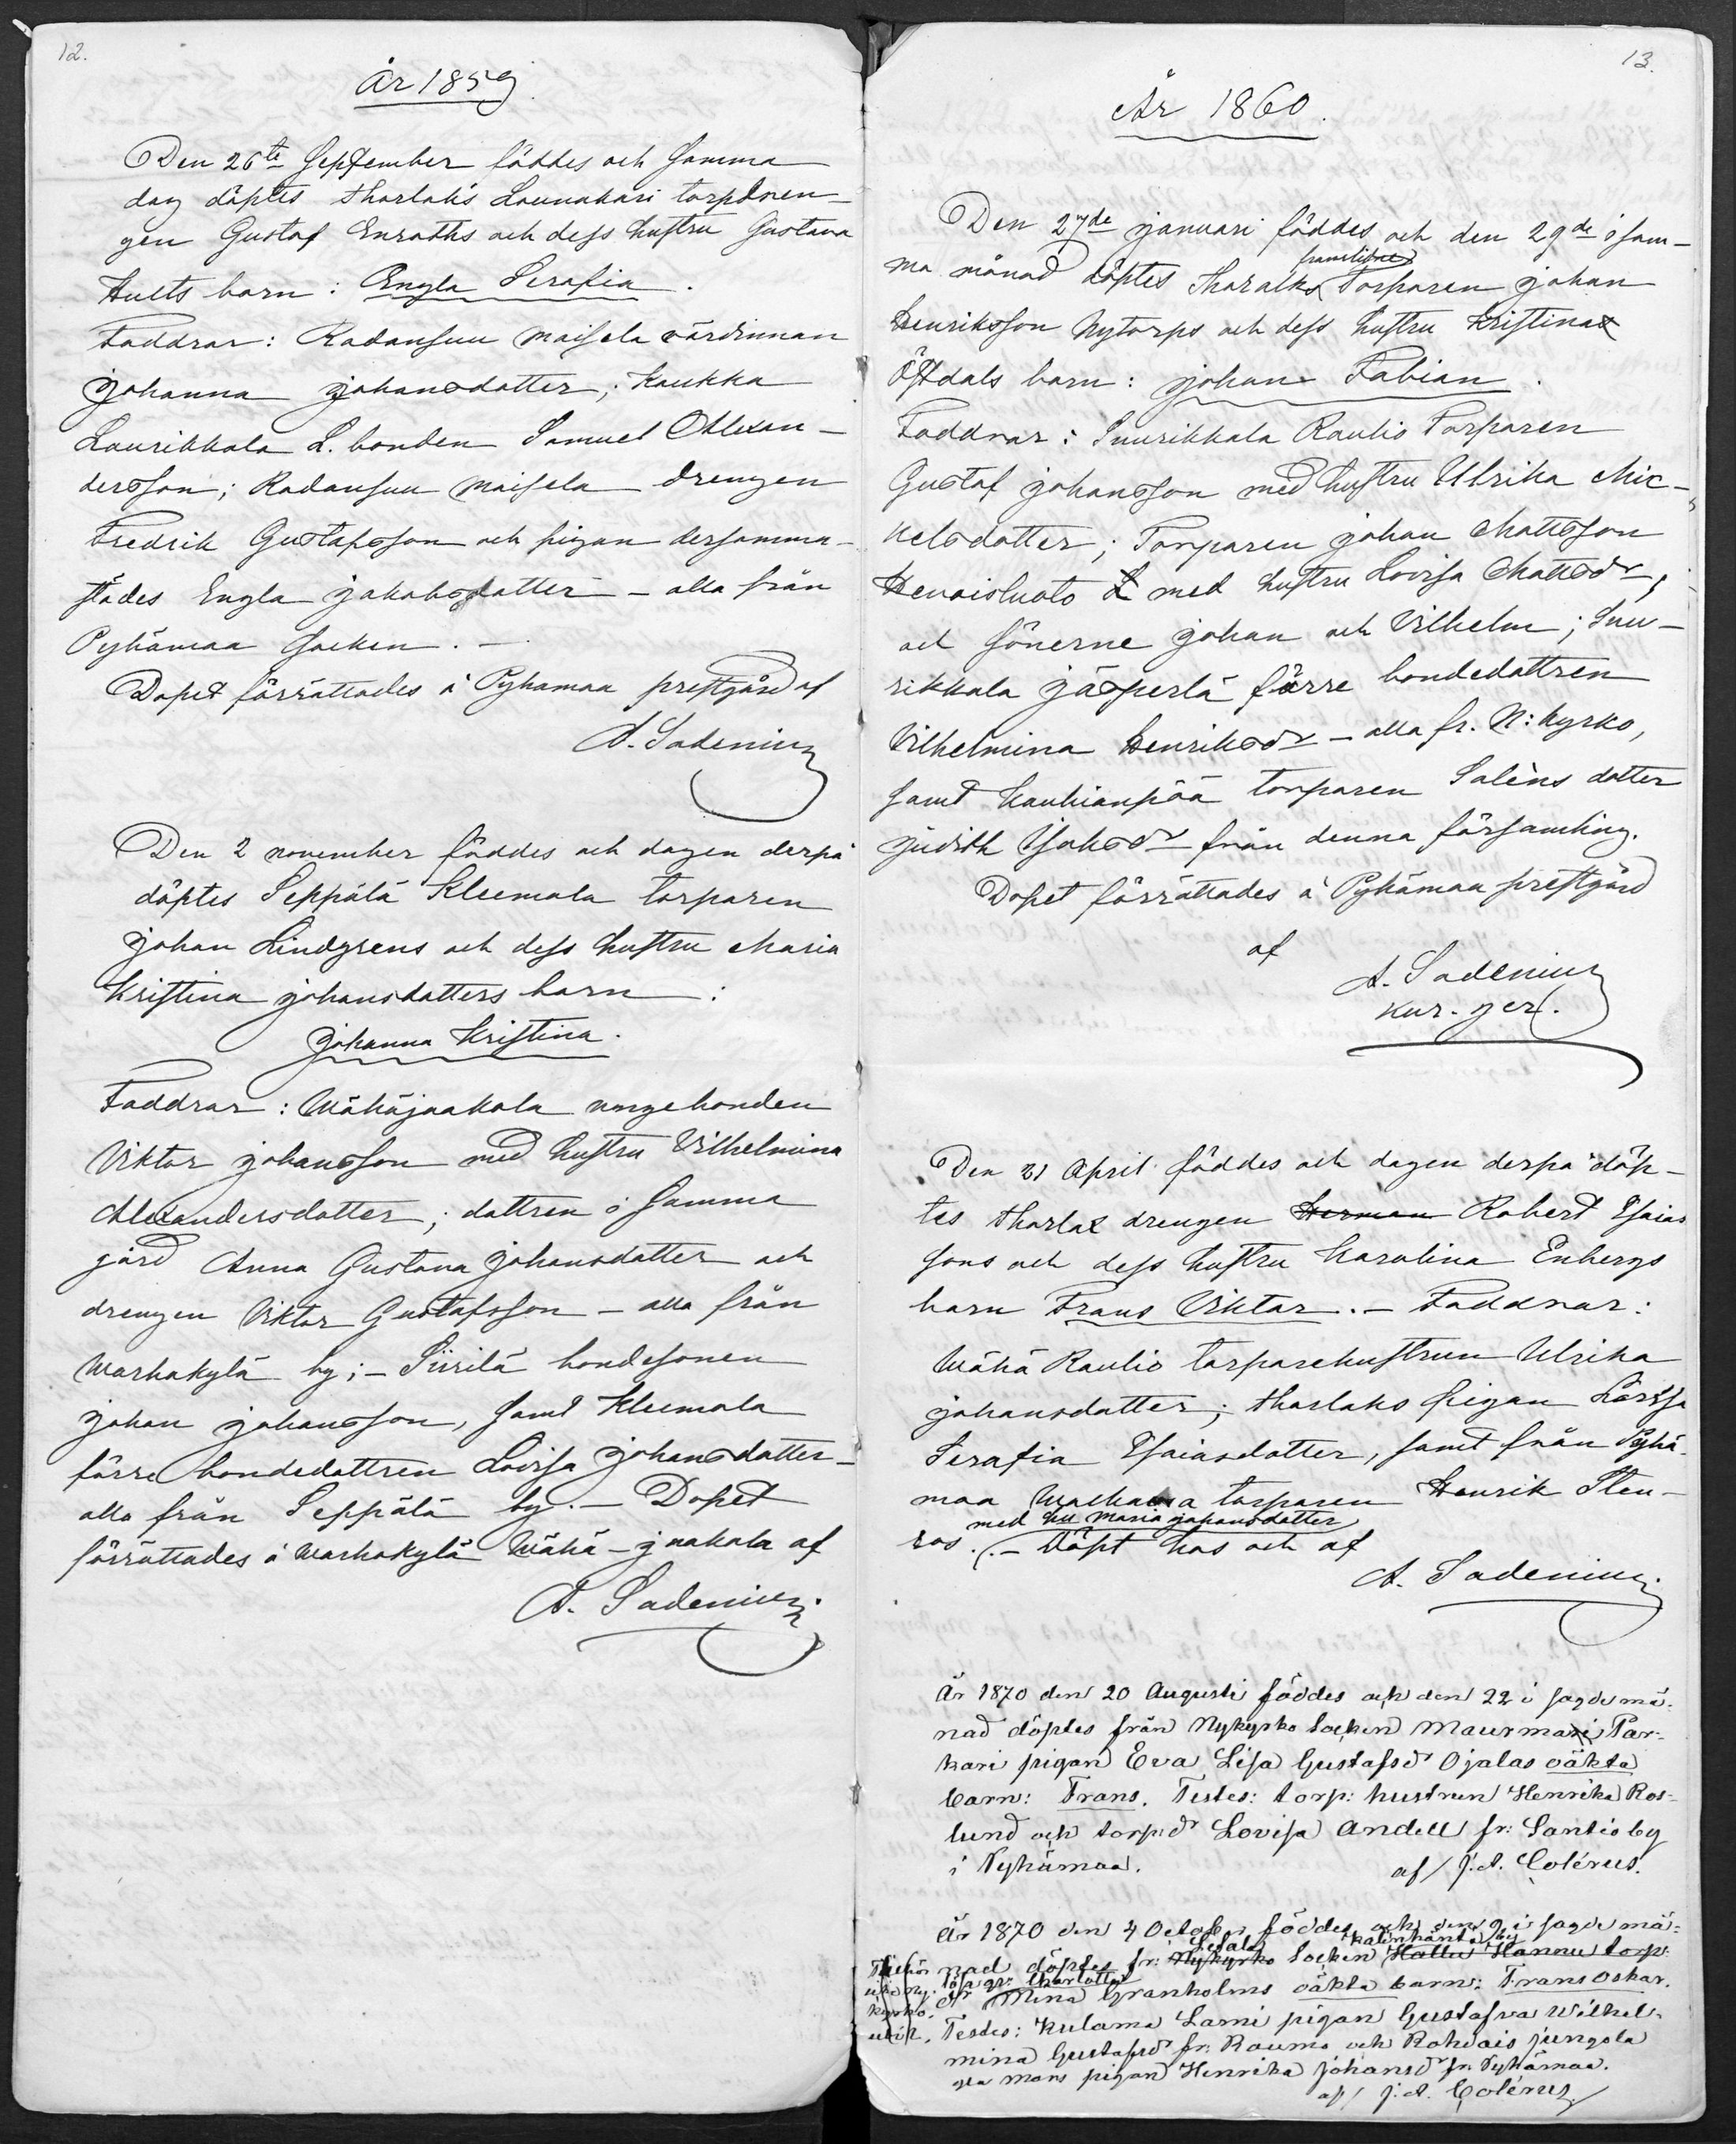 12.
År 1859
Den 26te September föddes och samma
dag döptes Tharlaks Lounakari torpdren-
gen Gustaf Enroths och dess hustru Gustava
Hults barn: Engla Serafia.
Faddrar: Radansuu Maisela värdinnan
Johanna Johansdotter; Kaukka
Laurikkala L. bonden Samuel Alexan-
dersson; Radansuu Maisela drengen
Fredrik Gustafsson och pigan dersamma-
städes Engla Jakobsdotter – alla från
Pyhämaa Socken. –
Dopet förrättades å Pyhamaa prestgård af
A. Sadenius
Den 2 november föddes och dagen derpå
döptes Seppälä Kleemola torparen
Johan Lindgrens och dess hustru Maria
Kristina Johansdotters barn:
Johanna Kristina.
Faddrar: Wähäjaakola unge bonden
Viktor Johansson med hustru Vilhelmina
Alexandersdotter; dottren i samma
gård Anna Gustava Johansdotter och
drengen Viktor Gustafsson – alla från
Warhakylä by; – Siirilä bondesonen
Johan Johansson, samt Kleemola
förre bondedottren Lovisa Johansdotter –
alla från Seppälä by. – Dopet
förrättades å Warhokylä Wähä-jaakola af
A. Sadenius.
13.
År 1860.
Den 27de januari föddes och den 29de i sam-
ma månad döptes Tharalks Torparen Johan
Henriksson Nytorps och dess hustru Kristina
Östdals barn: Johan Fabian.
Faddrar: Suurikkala Raulio Torparen
Gustaf Johansson med hustru Ulrika Mic-
kelsdotter; Torparen Johan Mattsson
Hevaisluoto med hustru Lovisa Mattsdr,
och sönerne Johan och Vilhelm; Suu-
rikkala Jäsperlä förre bondedottren
Vilhelmina Henriksdr – alla fr. N: kyrko,
samt Kauhianpää torparen Salèns dotter
Judith Isaksdr från denna församling.
Dopet förrättades å Pyhämaa prestgård
af
A. Sadenius
Den 21 April föddes och dagen derpå döp-
tes Tharlax drengen Herman Robert Esaias
sons och dess hustru Karolina Enbergs
barn Frans Viktor. – Faddrar:
Wähä Raulio torparehustrun Ulrika
Johansdotter; Tharlaks pigan Lovisa
Serafia Esaiasdotter, samt från Pyhä-
maa torparen Henrik Sten-
med hu Maria Johansdotter
ros. – Döpt hos och af
A. Sadenius.
År 1870 den 20 Augusti föddes och den 22 i sagde må-
nad döptes från Nykyrko Socken Maurmaa Par-
kari pigan Eva Lisa Gustafsdr Ojalas oäkta
barn: Frans. Testes: torp: hustrun Henrika Ros-
lund och torp:dr Lovisa Andell fr: Santio by
i Pyhämaa.
af / J. A. Colérus.
År 1870 den 4 October föddes och den 9 i sagde må-
nad döptes fr: Nykyrko Socken Hallu Hannu torp:
dr Mina Granholms oäkta barn: Frans Oskar.
Testes: Kulama Lami pigan Gustafva Wilhel-
mina Gustafsdr fr: Raumo och Rohdais Jungola
pigan Henrika Johansdr fr: Pyhämaa.
af / J. A. Colérus